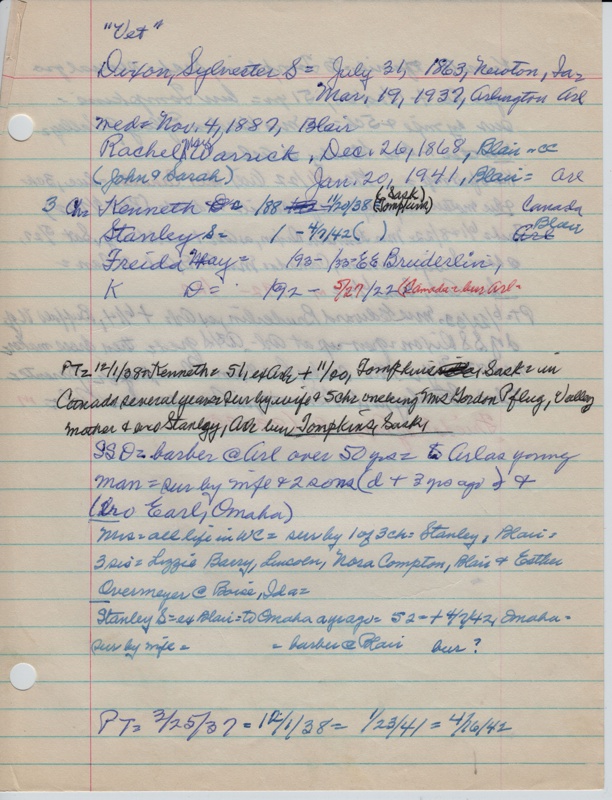 "Vet"
Dixon, Sylvester S= July 31, 1863, Newton, Ia=
Mar, 19, 1937, Arlington Arl
med= Nov. 4, 1887, Blair
Rachel Warrick, Dec. 26, 1868, Blair = cc
(John & Sarah) Jan. 20, 1941, Blair= Arl
3 Ch: Kenneth D= 188 11/20/38 (Sask) (Tompkins) Canada
Stanley S= 1 -4/7/42( ) Blair
Freida May= 193- 1/33-EE Bruderlin,
K D= 192- 5/27/22 (Canada= bur Arl-
PT= 12/1/38= Kenneth= 51, ex Arl + 11/20, Tompkins, Sask= in
Canada several years sur by wife & 5 ch: one being Mrs Gordon Pflug, Valley
mother & bro Stanley, Arl bur Tompkins, Sask,
SSD= barber @ Arl over 50 yrs= to Arl as young
man= sur by wife & 2 sons (d + 3 yrs ago) &
(bro Earl, Omaha)
Mrs= all life in WC= sur by 1 of 3 ch= Stanley, Blair=
3 sis= Lizzie Barry, Lincoln, Nora Compton, Blair & Esther
Overmeyer @ Boise, Ida=
Stanley S= ex Blair= to Omaha a yr ago= 52= + 4/7/42, Omaha-
sur by wife = = barber @ Blair bur?
PT= 3/25/37 = 12/1/38= 1/23/41= 4/16/42